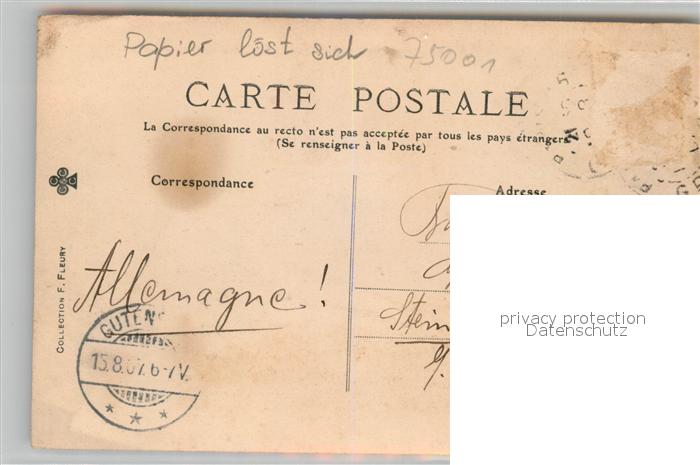 Papier löst sich 75001
CARTE POSTALE
La Correspondance au recto n'est pas acceptée par tous les pays étrangers
(Se renseigner à la Poste)
Correspondance
Adresse
COLLECTION F. FLEURY
Allemagne!
Stein
GUTENS
15.8.07.6-7V.
privacy protection
Datenschutz